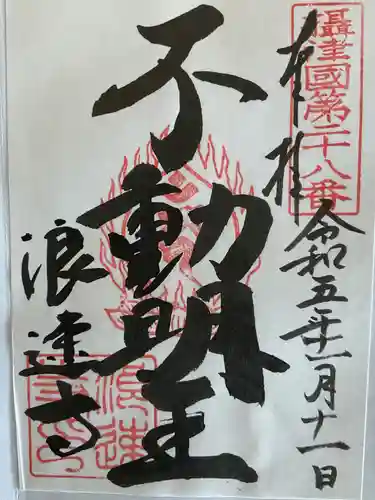 奉拝
攝津國第二十八番
令和五年十一月十一日
不動明王
浪速寺
浪速寺